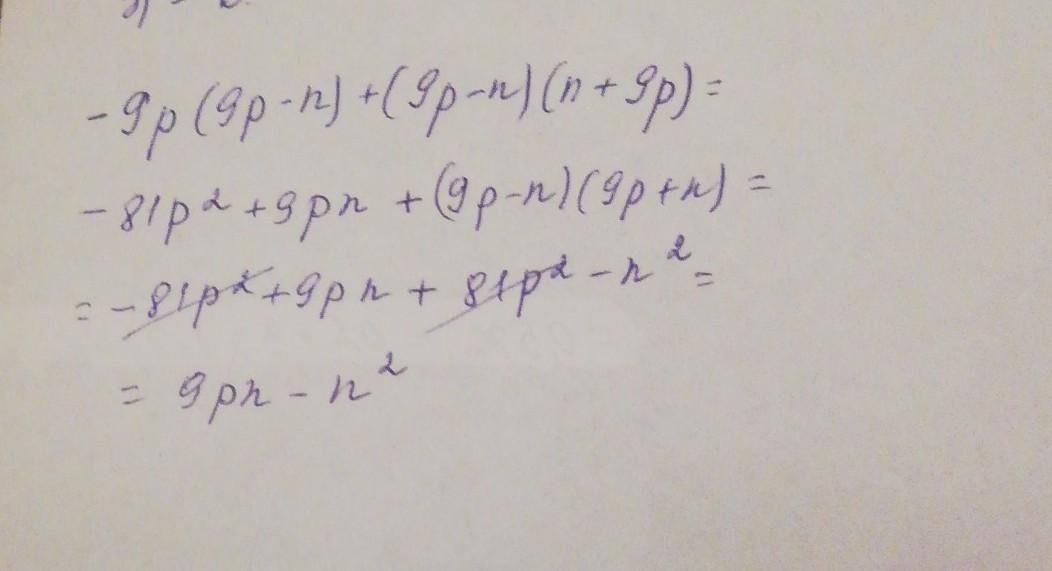 -9p(9p-n)+(9p-n)(n+9p)=
-81p²+9pn+(9p-n)(9p+n)=
=-81p²+9pn+81p²-n²=
=9pn-n²